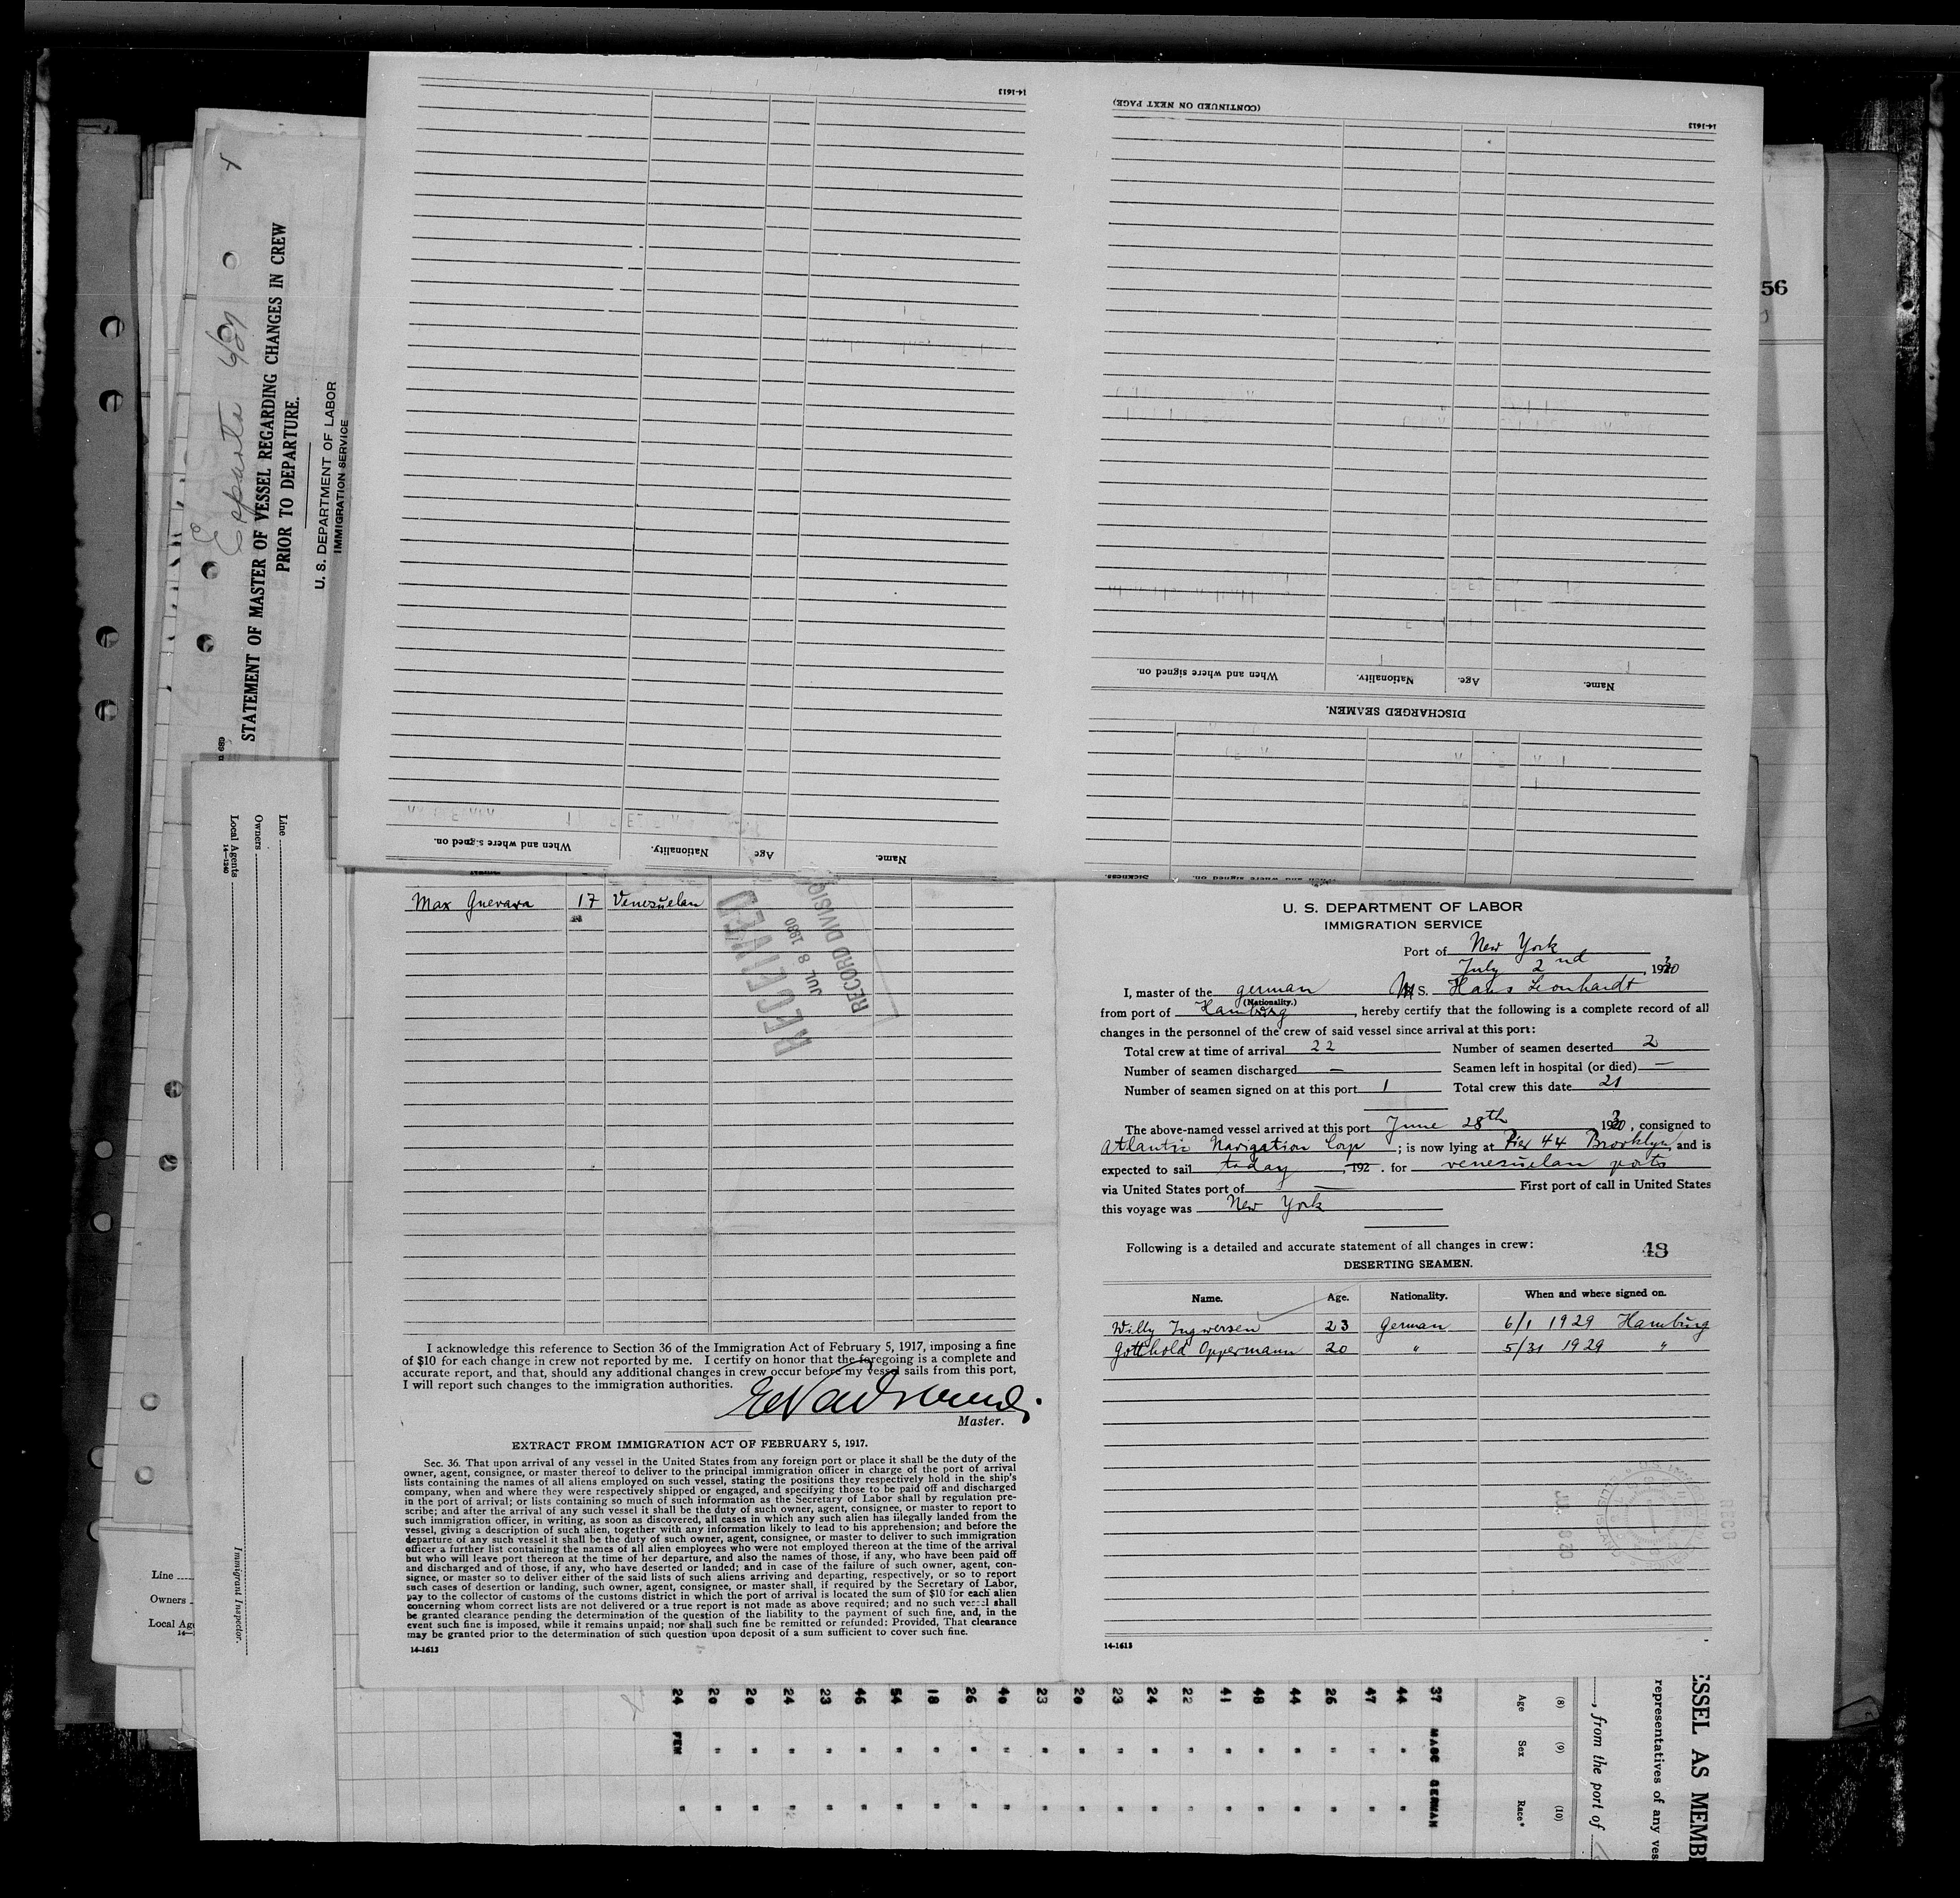 14-1613
(CONTINUED ON NEXT PAGE)
14-1613
STATEMENT OF MASTER OF VESSEL REGARDING CHANGES IN CREW
PRIOR TO DEPARTURE.
U. S. DEPARTMENT OF LABOR
IMMIGRATION SERVICE
689
56
When and where signed on. Nationality. Age. Name.
DISCHARGED SEAMEN.
When and where signed on. Nationality. Age Name.
Sickness. When and where signed on.
Line
Owners
Local Agents
14-1240
Immigrant Inspector.
Line
Owners
Local Age
Max Guevara 17 Venezuelan
RECEIVED
JUL 8 1930
RECORD DIVISION
I acknowledge this reference to Section 36 of the Immigration Act of February 5, 1917, imposing a fine
of $10 for each change in crew not reported by me. I certify on honor that the foregoing is a complete and
accurate report, and that, should any additional changes in crew occur before my vessel sails from this port,
I will report such changes to the immigration authorities.
Master.
EXTRACT FROM IMMIGRATION ACT OF FEBRUARY 5, 1917.
Sec. 36. That upon arrival of any vessel in the United States from any foreign port or place it shall be the duty of the
owner, agent, consignee, or master thereof to deliver to the principal immigration officer in charge of the port of arrival
lists containing the names of all aliens employed on such vessel, stating the positions they respectively hold in the ship's
company, when and where they were respectively shipped or engaged, and specifying those to be paid off and discharged
in the port of arrival; or lists containing so much of such information as the Secretary of Labor shall by regulation pre-
scribe; and after the arrival of any such vessel it shall be the duty of such owner, agent, consignee, or master to report to
such immigration officer, in writing, as soon as discovered, all cases in which any such alien has illegally landed from the
vessel, giving a description of such alien, together with any information likely to lead to his apprehension; and before the
departure of any such vessel it shall be the duty of such owner, agent, consignee, or master to deliver to such immigration
officer a further list containing the names of all alien employees who were not employed thereon at the time of the arrival
but who will leave port thereon at the time of her departure, and also the names of those, if any, who have been paid off
and discharged and of those, if any, who have deserted or landed; and in case of the failure of such owner, agent, con-
signee, or master so to deliver either of the said lists of such aliens arriving and departing, respectively, or so to report
such cases of desertion or landing, such owner, agent, consignee, or master shall, if required by the Secretary of Labor,
pay to the collector of customs of the customs district in which the port of arrival is located the sum of $10 for each alien
concerning whom correct lists are not delivered or a true report is not made as above required; and no such vessel shall
be granted clearance pending the determination of the question of the liability to the payment of such fine, and, in the
event such fine is imposed, while it remains unpaid; nor shall such fine be remitted or refunded: Provided, That clearance
may be granted prior to the determination of such question upon deposit of a sum sufficient to cover such fine.
14-1613
U. S. DEPARTMENT OF LABOR
IMMIGRATION SERVICE
Port of New York
July 2nd, 1930
I, master of the german M S. Hans Leonhardt
(Nationality.)
from port of Hamburg, hereby certify that the following is a complete record of all
changes in the personnel of the crew of said vessel since arrival at this port:
Total crew at time of arrival 22 Number of seamen deserted 2
Number of seamen discharged — Seamen left in hospital (or died) —
Number of seamen signed on at this port 1 Total crew this date 21
The above-named vessel arrived at this port June 28th 1930, consigned to
Atlantic Navigation Corp; is now lying at Pier 44 Brooklyn and is
expected to sail today, 192 . for venezuelan ports
via United States port of — First port of call in United States
this voyage was New York
Following is a detailed and accurate statement of all changes in crew: 48
DESERTING SEAMEN.
Name. Age. Nationality. When and where signed on.
Willy Ingwersen 23 German 6/1 1929 Hamburg
Gotthold Oppermann 20 " 5/31 1929 "
14-1613
24 20 20 24 23 46 54 18 26 40 23 20 23 24 22 41 48 44 26 47 44 37 Age (8)
FEM " " " " " " " " " " " " " " " " " " " " MASC Sex (9)
" " " " " " " " " " " " " " " " " " " " " GERMAN Race* (10)
, from the port of
representatives of any ves
ESSEL AS MEMB